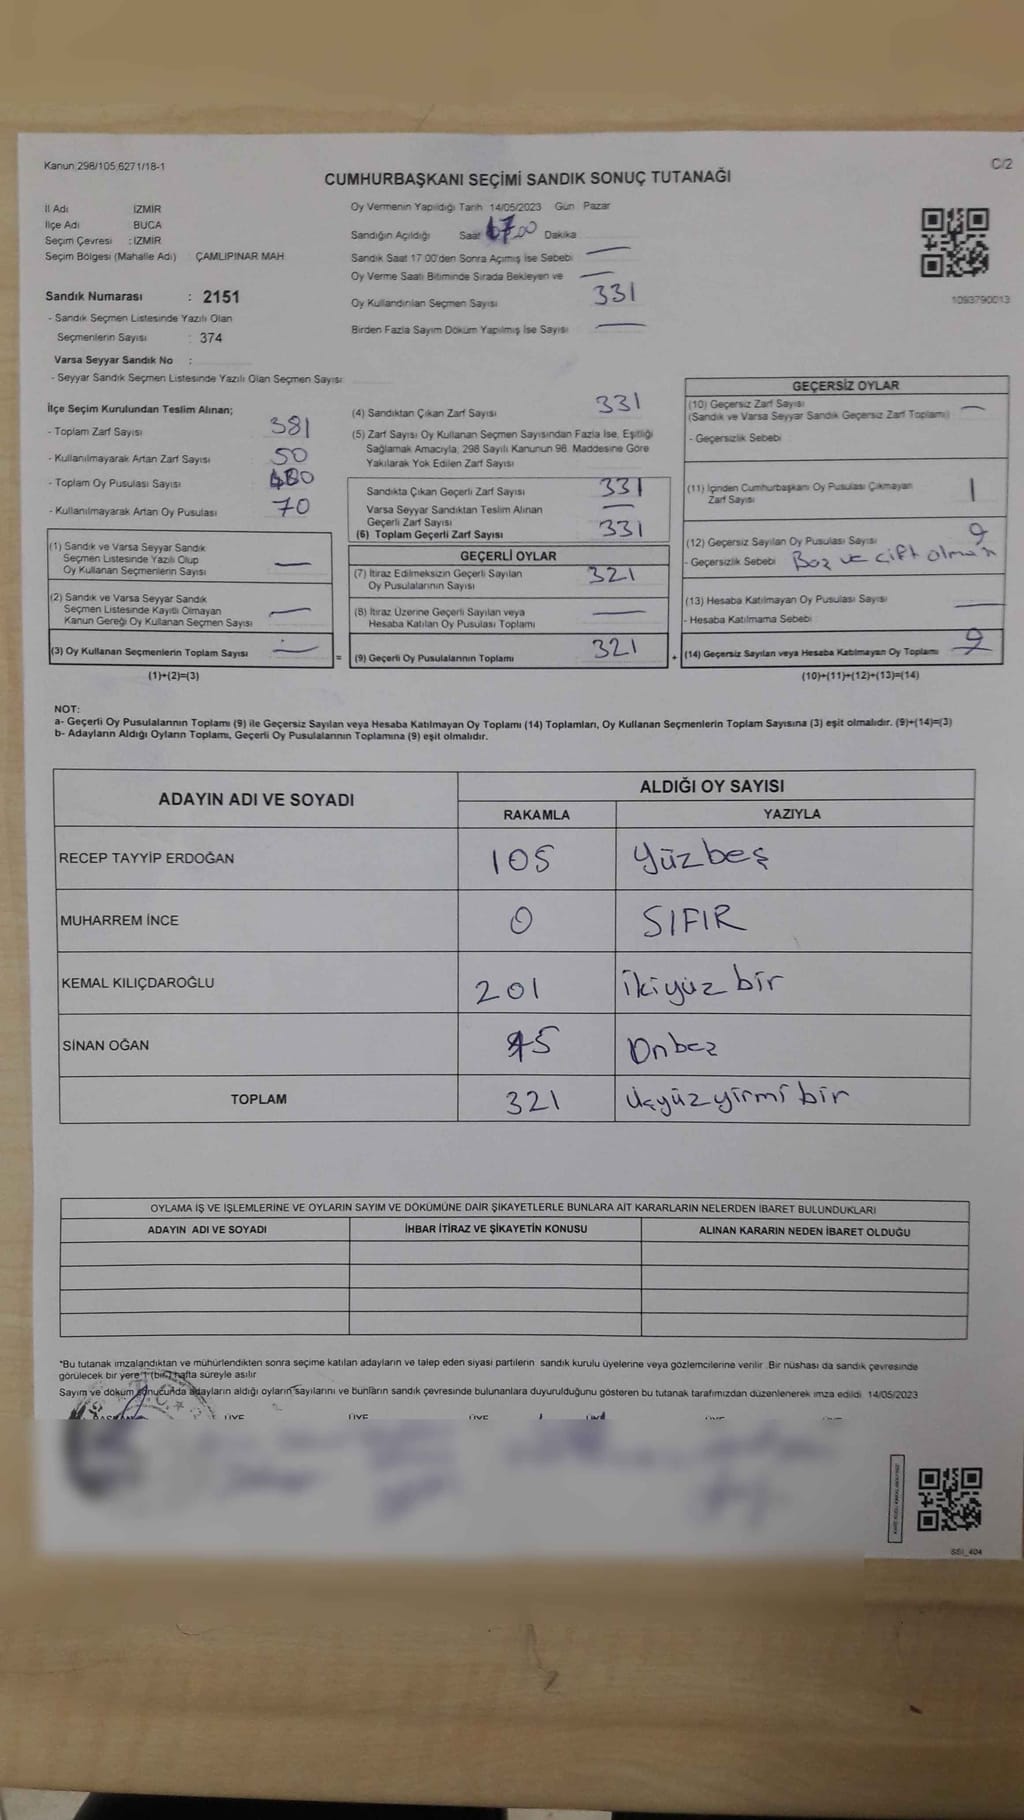 Kanun:298/105,6271/18-1
C/2
CUMHURBAŞKANI SEÇİMİ SANDIK SONUÇ TUTANAĞI
İl Adı İZMİR
İlçe Adı BUCA
Seçim Çevresi : İZMİR
Seçim Bölgesi (Mahalle Adı) : ÇAMLIPINAR MAH.
Oy Vermenin Yapıldığı Tarih 14/05/2023 Gün Pazar
Sandığın Açıldığı Saat 17.00 Dakika
Sandık Saat 17:00'den Sonra Açımış İse Sebebi —
Oy Verme Saati Bitiminde Sırada Bekleyen ve —
Oy Kullandırılan Seçmen Sayısı 331
Birden Fazla Sayım Döküm Yapılmış İse Sayısı —
1093790013
Sandık Numarası : 2151
- Sandık Seçmen Listesinde Yazılı Olan
Seçmenlerin Sayısı : 374
Varsa Seyyar Sandık No :
- Seyyar Sandık Seçmen Listesinde Yazılı Olan Seçmen Sayısı:
İlçe Seçim Kurulundan Teslim Alınan;
- Toplam Zarf Sayısı 381
- Kullanılmayarak Artan Zarf Sayısı 50
- Toplam Oy Pusulası Sayısı 400
- Kullanılmayarak Artan Oy Pusulası 70
(1) Sandık ve Varsa Seyyar Sandık
Seçmen Listesinde Yazılı Olup
Oy Kullanan Seçmenlerin Sayısı —
(2) Sandık ve Varsa Seyyar Sandık
Seçmen Listesinde Kayıtlı Olmayan
Kanun Gereği Oy Kullanan Seçmen Sayısı —
(3) Oy Kullanan Seçmenlerin Toplam Sayısı —
(1)+(2)=(3)
(4) Sandıktan Çıkan Zarf Sayısı 331
(5) Zarf Sayısı Oy Kullanan Seçmen Sayısından Fazla İse, Eşitliği
Sağlamak Amacıyla, 298 Sayılı Kanunun 98. Maddesine Göre
Yakılarak Yok Edilen Zarf Sayısı
Sandıkta Çıkan Geçerli Zarf Sayısı 331
Varsa Seyyar Sandıktan Teslim Alınan
Geçerli Zarf Sayısı —
(6) Toplam Geçerli Zarf Sayısı 331
GEÇERLİ OYLAR
(7) İtiraz Edilmeksizin Geçerli Sayılan
Oy Pusulalarının Sayısı 321
(8) İtiraz Üzerine Geçerli Sayılan veya
Hesaba Katılan Oy Pusulası Toplamı —
= (9) Geçerli Oy Pusulalarının Toplamı 321
GEÇERSİZ OYLAR
(10) Geçersiz Zarf Sayısı
(Sandık ve Varsa Seyyar Sandık Geçersiz Zarf Toplamı) —
- Geçersizlik Sebebi
(11) İçinden Cumhurbaşkanı Oy Pusulası Çıkmayan
Zarf Sayısı 1
(12) Geçersiz Sayılan Oy Pusulası Sayısı 9
- Geçersizlik Sebebi Boz ve çift olması
(13) Hesaba Katılmayan Oy Pusulası Sayısı —
- Hesaba Katılmama Sebebi
+ (14) Geçersiz Sayılan veya Hesaba Katılmayan Oy Toplamı 9
(10)+(11)+(12)+(13)=(14)
NOT:
a- Geçerli Oy Pusulalarının Toplamı (9) ile Geçersiz Sayılan veya Hesaba Katılmayan Oy Toplamı (14) Toplamları, Oy Kullanan Seçmenlerin Toplam Sayısına (3) eşit olmalıdır. (9)+(14)=(3)
b- Adayların Aldığı Oyların Toplamı, Geçerli Oy Pusulalarının Toplamına (9) eşit olmalıdır.
ADAYIN ADI VE SOYADI
ALDIĞI OY SAYISI
RAKAMLA YAZIYLA
RECEP TAYYİP ERDOĞAN 105 Yüzbeş
MUHARREM İNCE 0 SIFIR
KEMAL KILIÇDAROĞLU 201 ikiyüz bir
SİNAN OĞAN 15 Onbez
TOPLAM 321 üçyüzyirmi bir
OYLAMA İŞ VE İŞLEMLERİNE VE OYLARIN SAYIM VE DÖKÜMÜNE DAİR ŞİKAYETLERLE BUNLARA AİT KARARLARIN NELERDEN İBARET BULUNDUKLARI
ADAYIN ADI VE SOYADI
İHBAR İTİRAZ VE ŞİKAYETİN KONUSU
ALINAN KARARIN NEDEN İBARET OLDUĞU
*Bu tutanak imzalandıktan ve mühürlendikten sonra seçime katılan adayların ve talep eden siyasi partilerin sandık kurulu üyelerine veya gözlemcilerine verilir. Bir nüshası da sandık çevresinde
görülecek bir yere 1 (bir) hafta süreyle asılır
Sayım ve döküm sonucunda adayların aldığı oyların sayılarını ve bunların sandık çevresinde bulunanlara duyurulduğunu gösteren bu tutanak tarafımızdan düzenlenerek imza edildi. 14/05/2023
BAŞKAN ÜYE ÜYE ÜYE ÜYE ÜYE ÜYE
SSİ_404